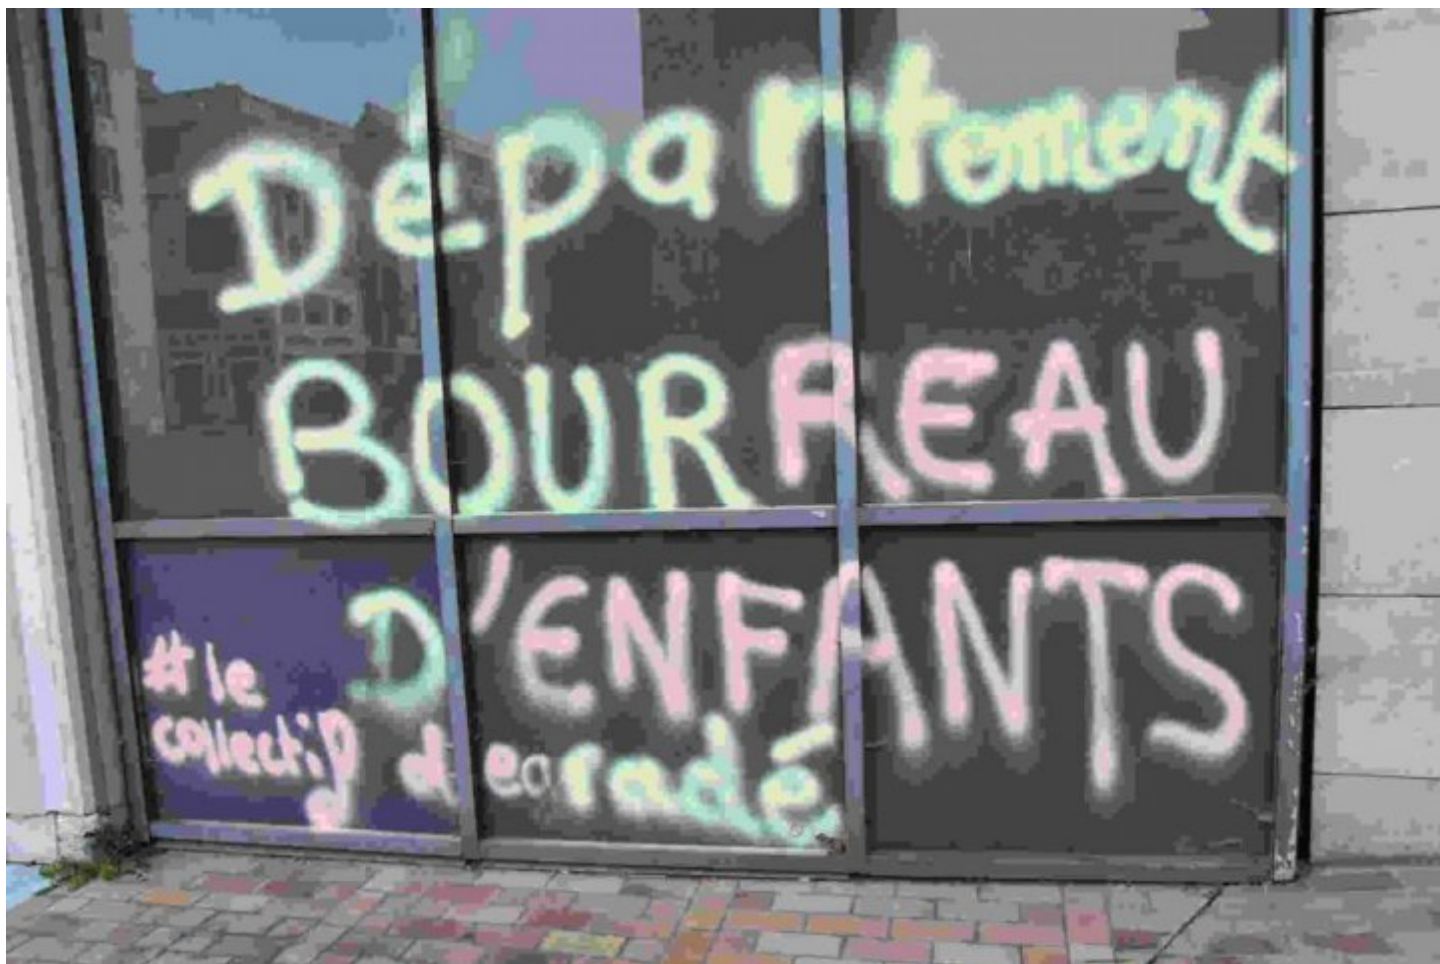 Département
BOURREAU
D'ENFANTS
#le
collectif dégradé